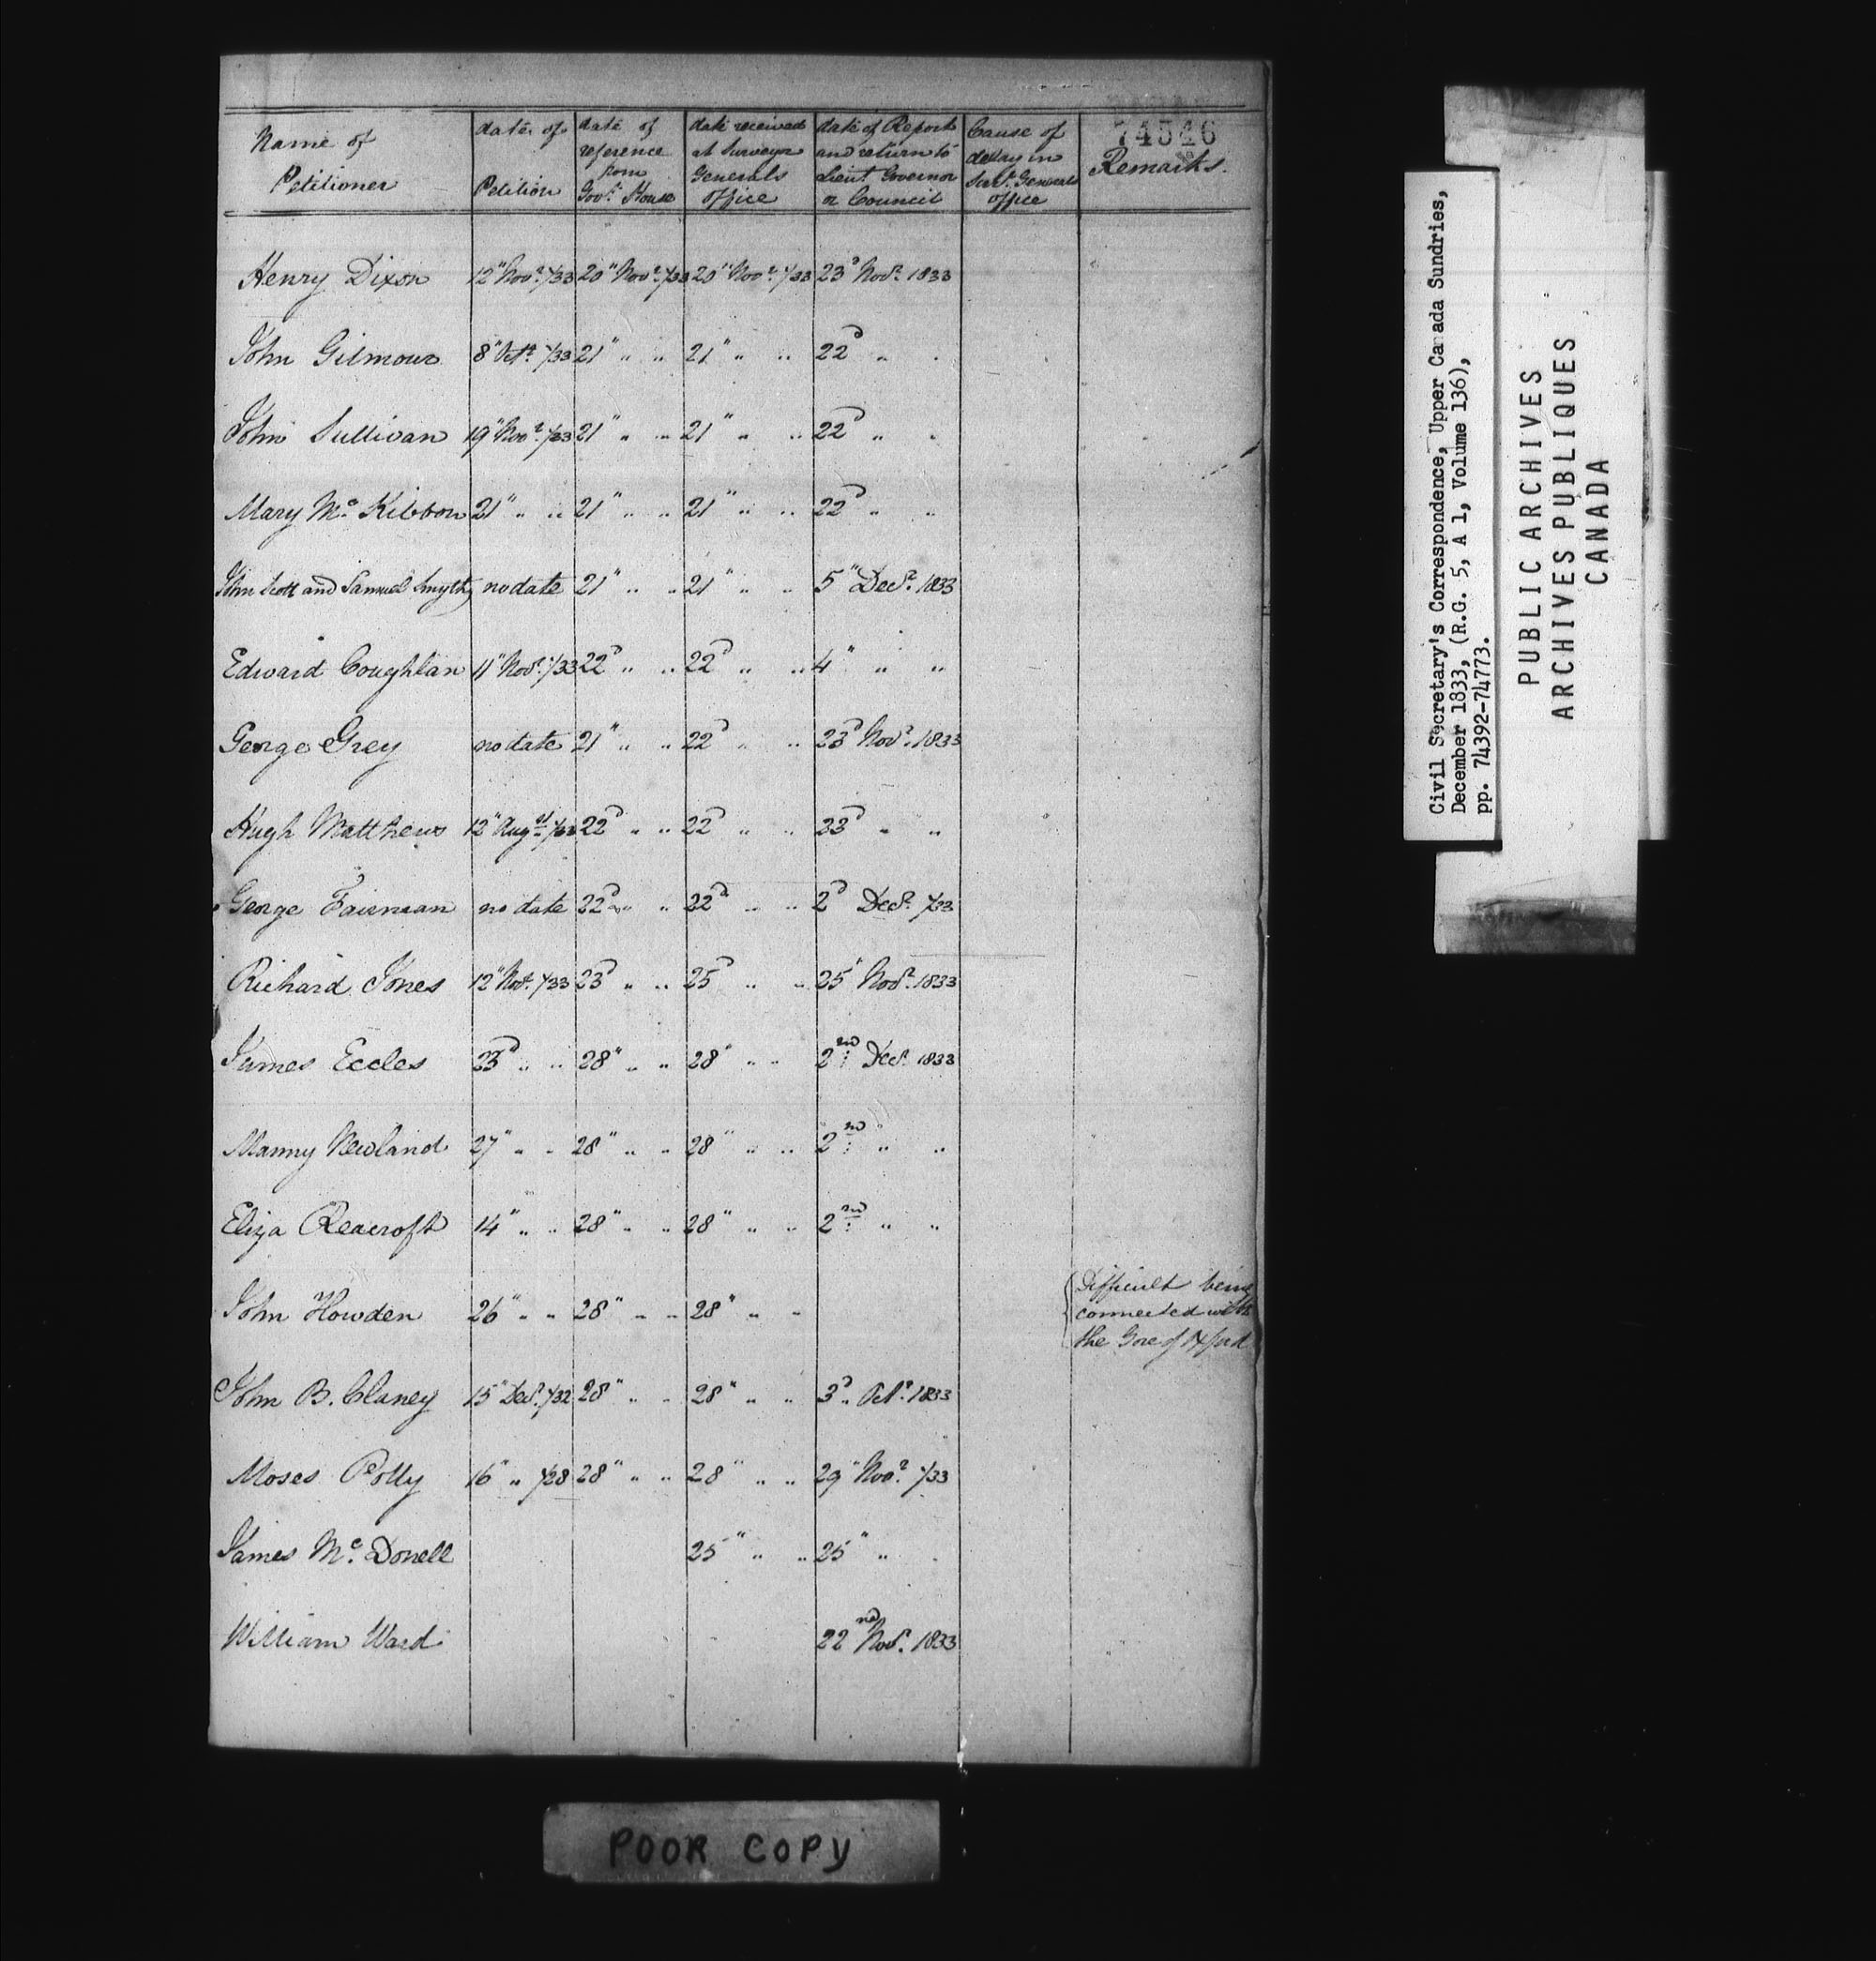 74546
Name of Petitioner | date of Petition | date of reference from Govt. House | date received at Surveyor Generals office | date of Report and return to Lieut Governor or Council | Cause of delay in Survr. Generals office | Remarks.
Henry Dixon | 12" Novr. 1/33 | 20" Novr. 1/33 | 20" Novr. 1/33 | 23d Novr. 1833
John Gilmour | 8" Octr. 1/33 | 21" " " | 21" " " | 22d " "
John Sullivan | 19" Novr. 1/33 | 21" " " | 21" " " | 22d " "
Mary Mc. Kibbon | 21" " " | 21" " " | 21" " " | 22d " "
John Scott and Samuel Smyth | no date | 21" " " | 21" " " | 5" Decr. 1833
Edward Coughlan | 11" Novr. 1/33 | 22d " " | 22d " " | 4" " "
George Grey | no date | 21" " " | 22d " " | 23d Novr. 1833
Hugh Matthews | 12" Augst | 22d " " | 22d " " | 23d " "
George Fairman | no date | 22d " " | 22d " " | 2d Decr. 1/33
Richard Jones | 12" Nov. 1/33 | 23d " " | 25 " " | 25" Novr. 1833
James Eccles | 23d " " | 28" " " | 28" " " | 2nd Decr. 1833
Manny Newland | 27" " " | 28" " " | 28" " " | 2nd " "
Eliza Reacroft | 14" " " | 28" " " | 28" " " | 2nd " "
John Howden | 26" " " | 28" " " | 28" " " | | | Difficult being connected with the Gore of
John B. Claney | 15" Decr. 1/32 | 28" " " | 28" " " | 3d Octr. 1833
Moses Polly | 16" " 1/28 | 28" " " | 28" " " | 29" Novr. 1/33
James Mc. Donell | | | 25" " " | 25" " "
William Ward | | | | 22nd Novr. 1833
Civil Secretary's Correspondence, Upper Canada Sundries,
December 1833, (R.G. 5, A 1, Volume 136),
pp. 74392-74773.
PUBLIC ARCHIVES
ARCHIVES PUBLIQUES
CANADA
POOR COPY